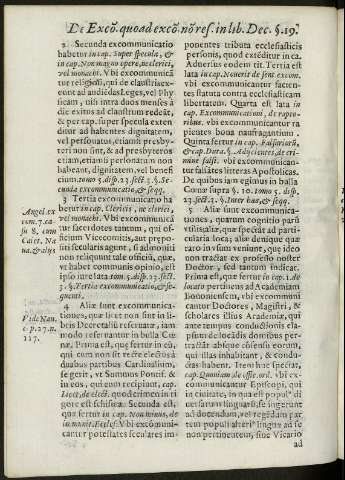 De Excõ. quoad excõ. nõ res. in lib. Dec. §. 19.
2 Secunda excommunicatio
habetur in cap. Super specula, &
in cap. Non magno opere, ne clerici,
vel monachi. Vbi excommunicã
tur religiosi, qui de claustris exe-
unt ad audiendas Leges, vel Phy
sicam, nisi intra duos menses à
die exitus ad claustrum redeãt,
& per cap. super specula exten
ditur ad habentes dignitatem,
vel personatus, etiamsi presbyte-
ri non sint, & ad presbyteros
etiam, etiamsi personatum non
habeant, dignitatem, vel benefi
cium. tomo 5. disp. 23. sect. 3. §. Se-
cunda excommunicatio, & seqq.
3 Tertia excommunicatio ha
betur in cap. Clericis, ne clerici,
vel monachi. Vbi excommunicã
tur sacerdotes tantum, qui of-
ficium Vicecomitis, aut præpo-
siti secularis agunt, si admoniti
non reliquunt tale officiũ, quæ,
vt habet communis opinio, est
ipso iure lata tom. 5. disp. 23. sect.
3. §. Tertia excommunicatio, & se-
quenti.
4 Aliæ sunt excommunica-
tiones, quæ licet non sint in li-
bris Decretaliũ reseruatæ, iam
modo reseruantur in bulla Cœ
næ. Prima est, quæ fertur in eũ,
qui cum non sit rectè electus à
duabus partibus Cardinalium,
se gerit, vt Summus Pontif. &
in eos, qui eum recipiunt, cap.
Licet, de elect. quod crimen in ri
gore est schisma: Secunda est,
quæ fertur in cap. Non minus, de
immunit. Eccles. Vbi excommuni
cantur potestates seculares im-
Angel. ex
com. 7. ca-
su 8. cum
Caiet. Na
ua. & alijs
Vide Nau.
c. p. 27. n.
127.
ponentes tributa ecclesiasticis
personis, quod extéditur in ca.
Aduersus eodem tit. Tertia est
lata in cap. Nouerit de sent. excom.
vbi excommunicantur facien-
tes statuta contra ecclesiasticam
libertatem. Quarta est lata in
cap. Excommunicationi, de rapto-
ribus. vbi excommunicantur ra
pientes bona naufragantium.
Quinta fertur in cap. Falsariorũ,
& cap. Dura, §. Adijcientes, de cri-
mine falsi. vbi excommunicantur
falsantes litteras Apostolicas.
De quibus iam egimus in bulla
Cœnæ supra §. 10. tomo 5. disp.
23. sect. 3. §. Inter has, & seqq.
5 Aliæ sunt excommunica-
tiones, quarum cognitio parũ
vtilis iudicatur, quæ spectant ad par
ticularia loca; aliæ denique quæ
iam non in vsum, de quibus ideo
non tractat ex professo noster
Doctor, sed tantum indicat.
Prima est, quæ fertur in cap. 1. de
locato pertinens ad Academiam
Bononiensem, vbi excommuni
cantur Doctores, Magistri, &
scholares illius Academiæ, qui
ante tempus conductionis ela-
psum de locãdis domibus per-
tractãt absque cõsensu eorum,
qui illas inhabitant, & condu-
ctas habent. Item hæc spectat,
cap. Quoniam de offic. ord. vbi ex-
communicantur Episcopi, qui
in ciuitate, in qua est populꝰ di
uersarum linguarũ, se ingerunt
ad docendum, vel regẽdam par
tem populi alteriꝰ linguæ ad se
non pertinentem, siue Vicario
ad